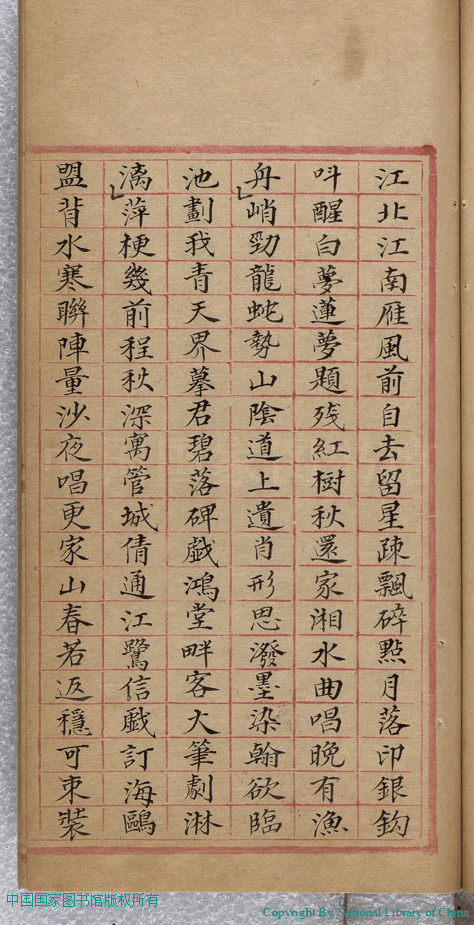 江北江南雁風前自去留星疎飄碎點月落印銀鈎
呌醒白夢蓮夢題残紅樹秋還家湘水曲唱晚有漁
舟峭勁龍蛇勢山陰道上遺肖形思潑墨染翰欲臨
池劃我青天界摹君碧落碑戲鴻堂畔客大筆劇淋
漓萍梗幾前程秋深寓管城倩通江鷺信戲訂海鷗
盟背水寒聯陣量沙夜唱更家山春若返穩可束裝
中国国家图书馆版权所有
Copyright By National Library of China